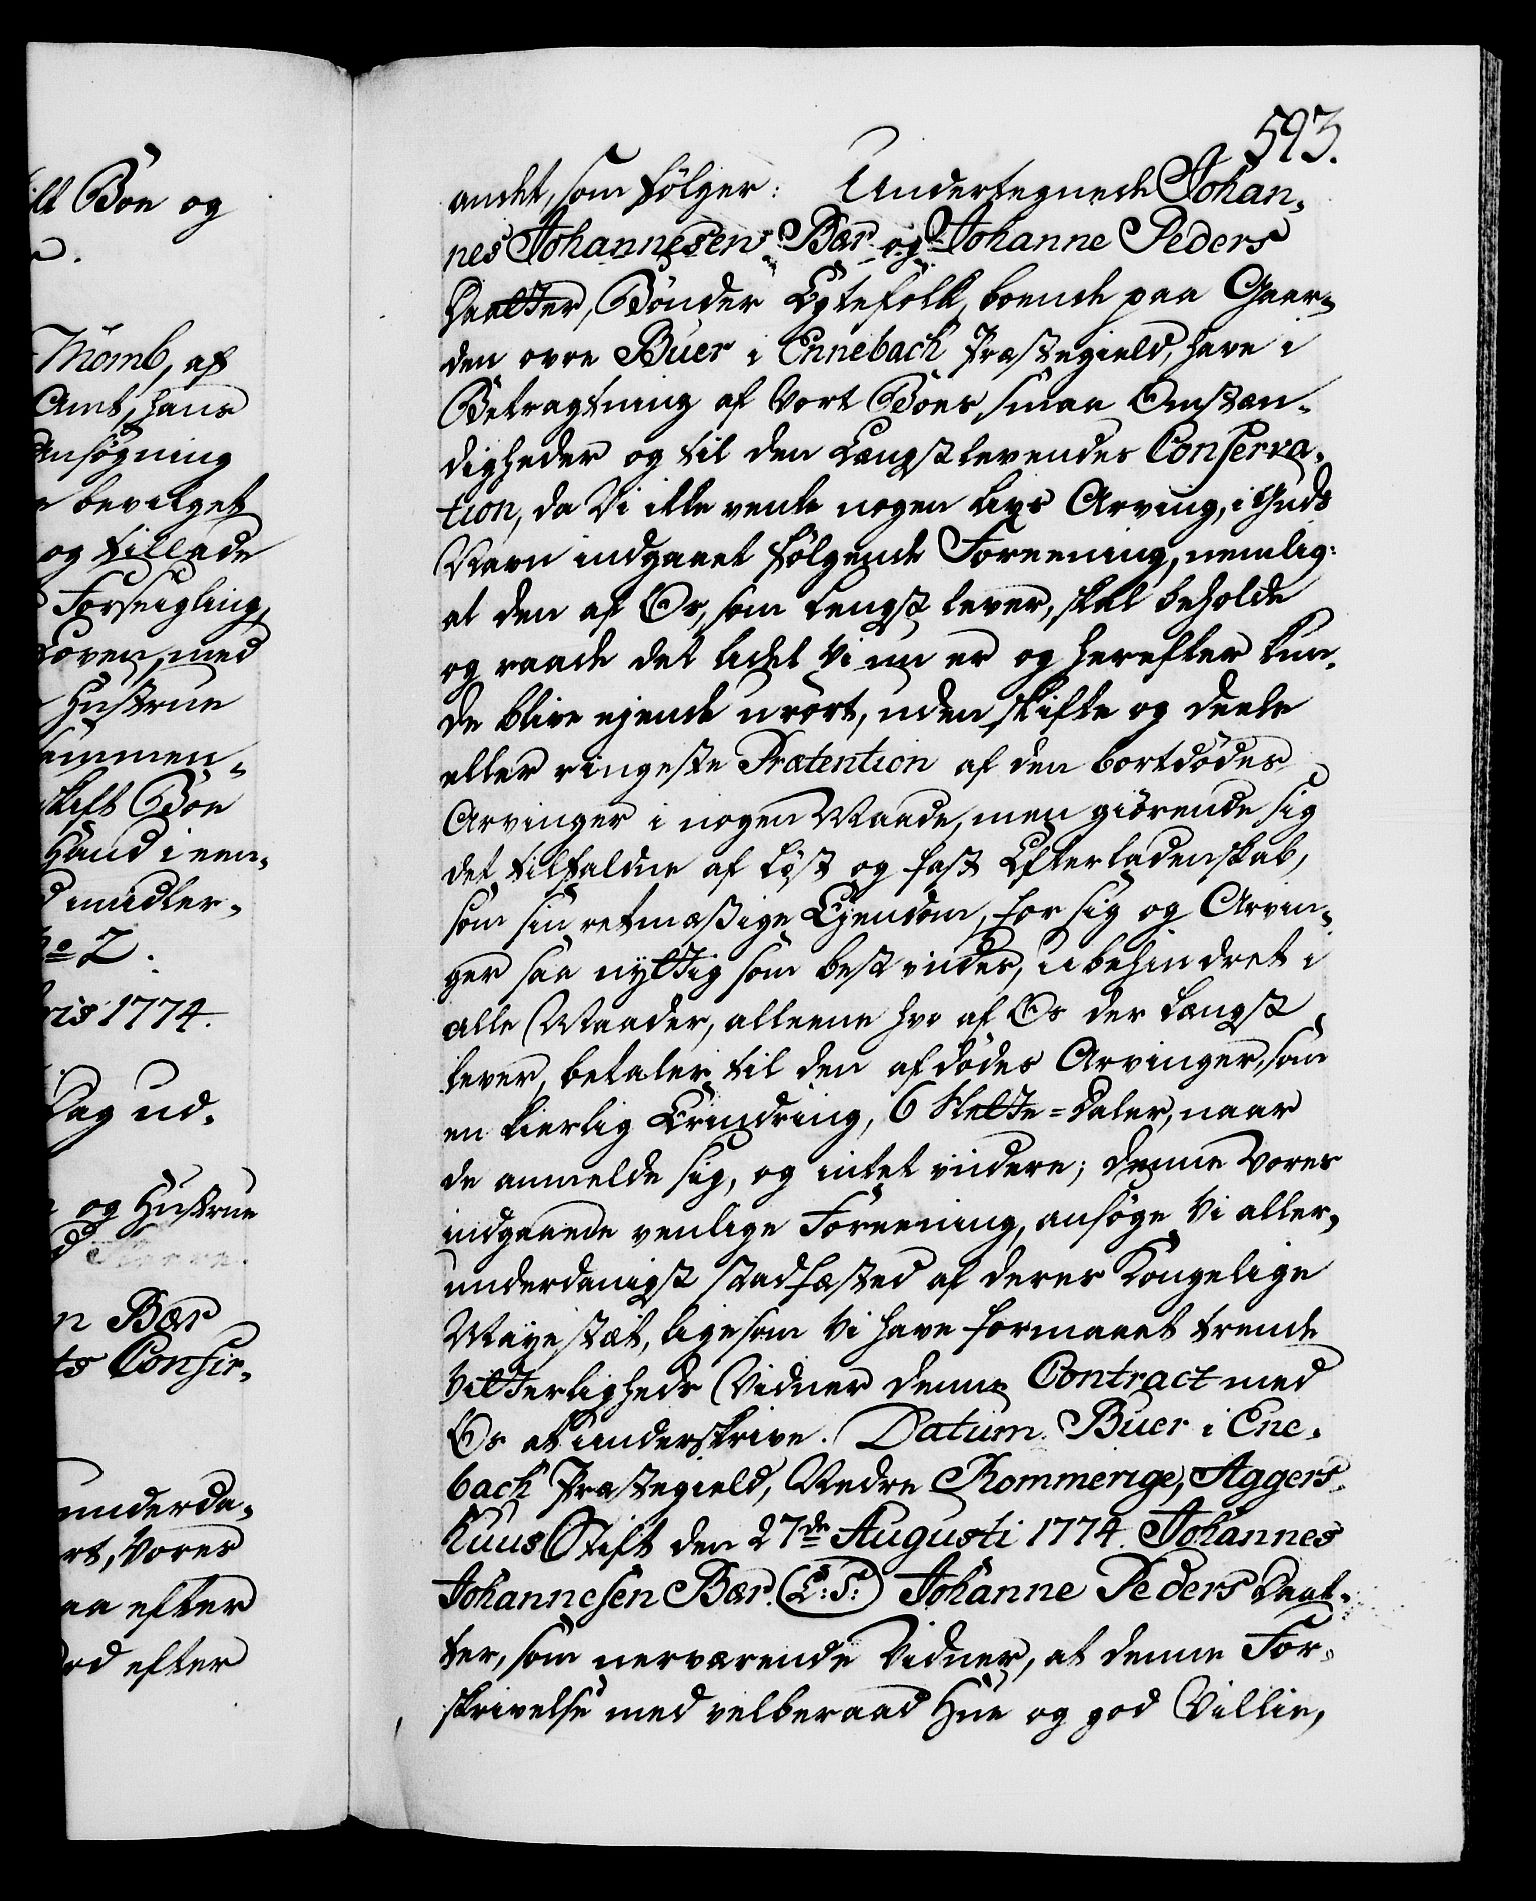 ilt Boe og
Thomb, af
Amt, hans
Ansøgning
bevilget
og tillade
Forseigling,
Loven, med
Hustrue
sammen-
skift Boe
Haand i een-
midler-
No 2.
ris 1774.
Dag ud-
og Hustrue
n Bær
ts Confir-
underda-
rt, Vores
aa efter
od efter
593.
andet, som følger: Undertegnede Johan-
nes Johannesen Bær og Johanne Peders
Daatter, Bønder Egtefolk, boende paa Gaar-
den ovre Buer i Ennebach Præstegield, have i
Betragtning af Vort Boes smaa Omstæn-
digheder og til den Længstlevendes Conserva-
tion, da Vi ikke vente nogen Livs Arving, i Guds
Navn indgaaet følgende Foreening, nemlig:
at den af Os, som lengst lever, skal beholde
og raade det lidet Vi nu er og herefter kun-
de blive ejende urørt, uden skifte og deele
eller ringeste Prætention af den bortdødes
Arvinger i nogen Maade, men giørende sig
det tilfaldne af løst og fast Efterladenskab,
som sin retmæßige Ejendom, for sig og Arvin-
ger saa nyttig som best vides, ubehindret i
alle Maader, alleene hvo af Os der længst
lever, betaler til den afdødes Arvinger, som
en kierlig Erindring, 6 Slette-Daler, naar
de anmelde sig, og intet videre; denne vores
indgaaede venlige Foreening, ansøge Vi aller-
underdanigst stadfæsted af deres Kongelige
Mayestæt, ligesom Vi have formaaet trende
Vitterligheds Vidner denne Contract med
Os at underskrive. Datum Buer i Ene-
bach Præstegield, Nedre Rommerige, Aggers-
huus Stift den 27de Augusti 1774. Johannes
Johannesen Bær. (L: S:) Johanne Peders Daat-
ter, som nerværende Vidner, at denne For-
skrivelse med velberaad Hue og god Villie,